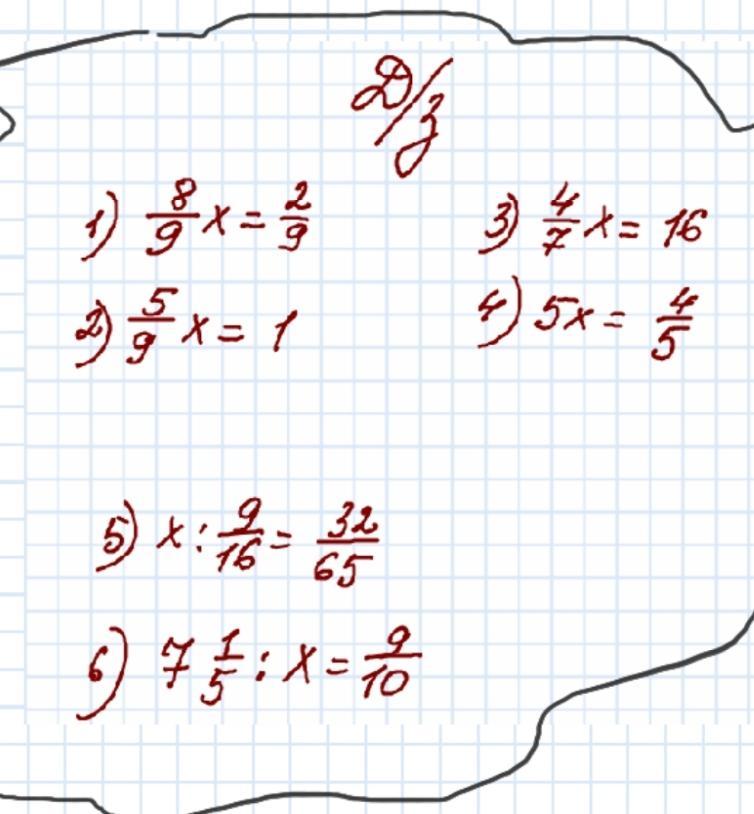 Д/з
1) 8/9 x = 2/9
3) 4/7 x = 16
2) 5/9 x = 1
4) 5x = 4/5
5) x : 9/16 = 32/65
6) 7 1/5 : x = 9/10